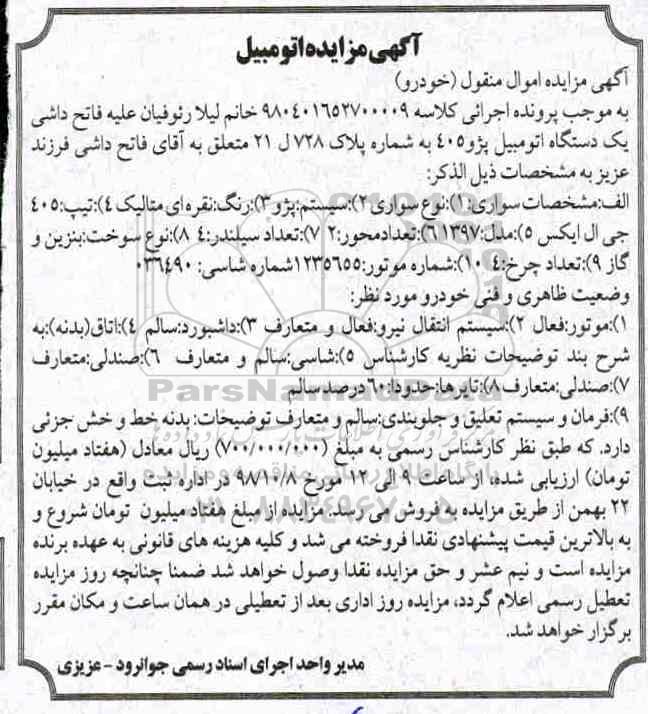 آگهی مزایده اتومبیل
آگهی مزایده اموال منقول (خودرو)
به موجب پرونده اجرائی کلاسه ۹۸۰۴۰۱۶۵۲۷۰۰۰۰۹ خانم لیلا رئوفیان علیه فاتح داشی
یک دستگاه اتومبیل پژو۴۰۵ به شماره پلاک ۷۲۸ ل ۲۱ متعلق به آقای فاتح داشی فرزند
عزیز به مشخصات ذیل الذکر:
الف:مشخصات سواری:۱):نوع سواری ۲):سیستم:پژو ۳):رنگ:نقره ای متالیک ۴):تیپ:۴۰۵
جی ال ایکس ۵):مدل:۱۳۹۷ ۶):تعدادمحور:۲ ۷):تعداد سیلندر:۴ ۸):نوع سوخت:بنزین و
گاز ۹):تعداد چرخ:۴ ۱۰):شماره موتور:۱۲۳۵۶۵۵شماره شاسی: ۰۳۶۴۹۰
وضعیت ظاهری و فنی خودرو مورد نظر:
۱):موتور:فعال ۲):سیستم انتقال نیرو:فعال و متعارف ۳):داشبورد:سالم ۴):اتاق(بدنه):به
شرح بند توضیحات نظریه کارشناس ۵):شاسی:سالم و متعارف ۶):صندلی:متعارف
۷):صندلی:متعارف ۸):تایرها:حدودا:۶۰ درصد سالم
۹):فرمان و سیستم تعلیق و جلوبندی:سالم و متعارف توضیحات: بدنه خط و خش جزئی
دارد. که طبق نظر کارشناس رسمی به مبلغ (۷۰۰/۰۰۰/۰۰۰) ریال معادل (هفتاد میلیون
تومان) ارزیابی شده، از ساعت ۹ الی ۱۲ مورخ ۹۸/۱۰/۸ در اداره ثبت واقع در خیابان
۲۲ بهمن از طریق مزایده به فروش می رسد. مزایده از مبلغ هفتاد میلیون تومان شروع و
به بالاترین قیمت پیشنهادی نقدا فروخته می شد و کلیه هزینه های قانونی به عهده برنده
مزایده است و نیم عشر و حق مزایده نقدا وصول خواهد شد ضمنا چنانچه روز مزایده
تعطیل رسمی اعلام گردد، مزایده روز اداری بعد از تعطیلی در همان ساعت و مکان مقرر
برگزار خواهد شد.
مدیر واحد اجرای اسناد رسمی جوانرود - عزیزی
ParsNamadData